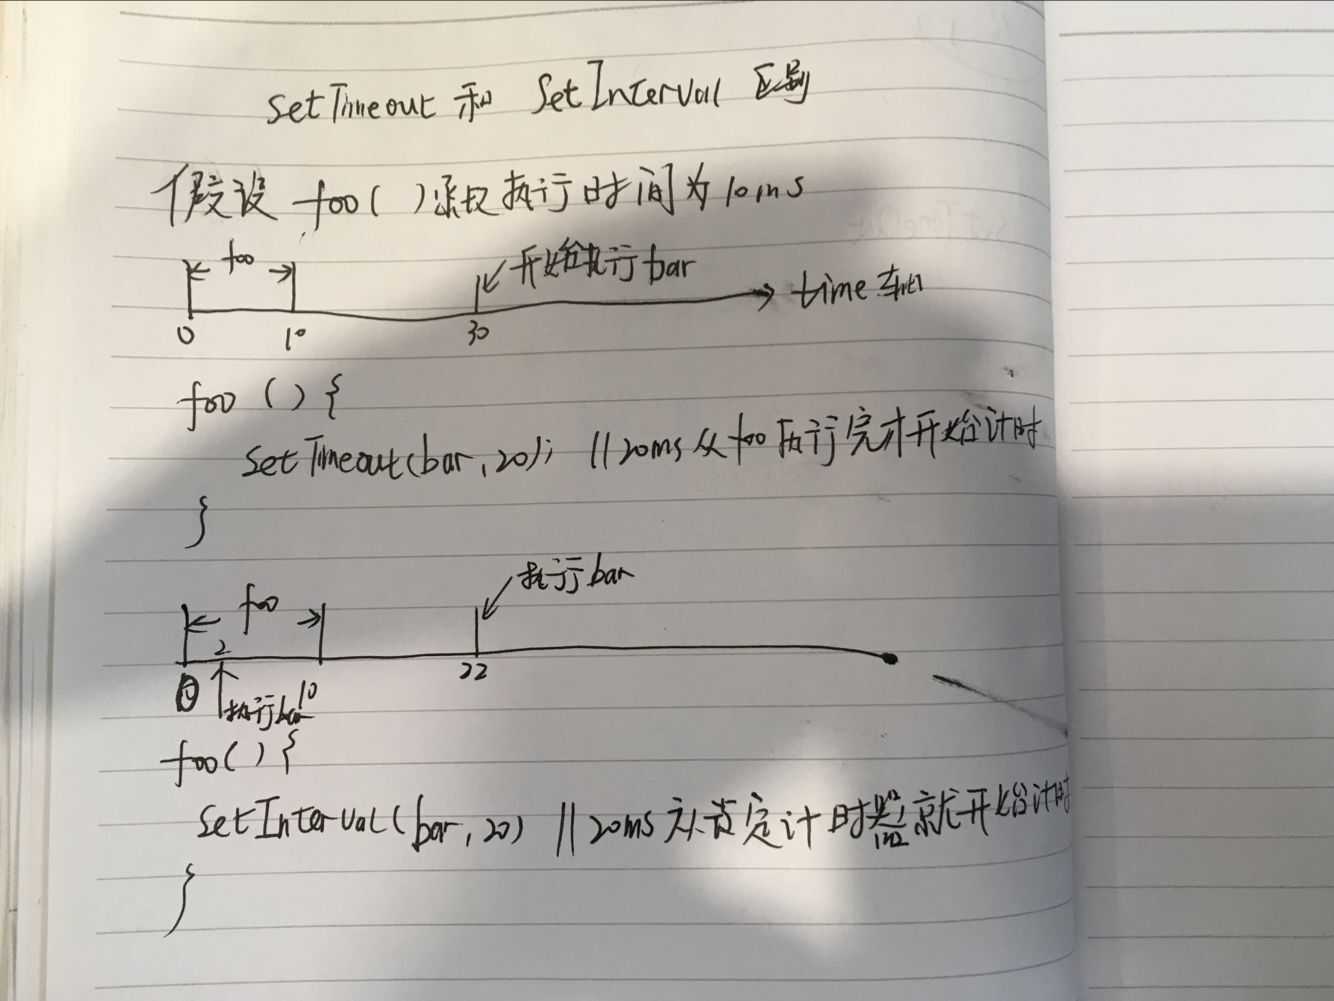 setTimeout 和 SetInterval 区别
假设 foo( )函数执行时间为10ms
foo
开始执行bar
time 轴
0 10 30
foo ( ) {
setTimeout(bar,20); //20ms从foo执行完才开始计时
}
执行bar
foo
2
0 10 22
执行bar
foo( ) {
SetInterval(bar,20) //20ms 从设定计时器就开始计时
}